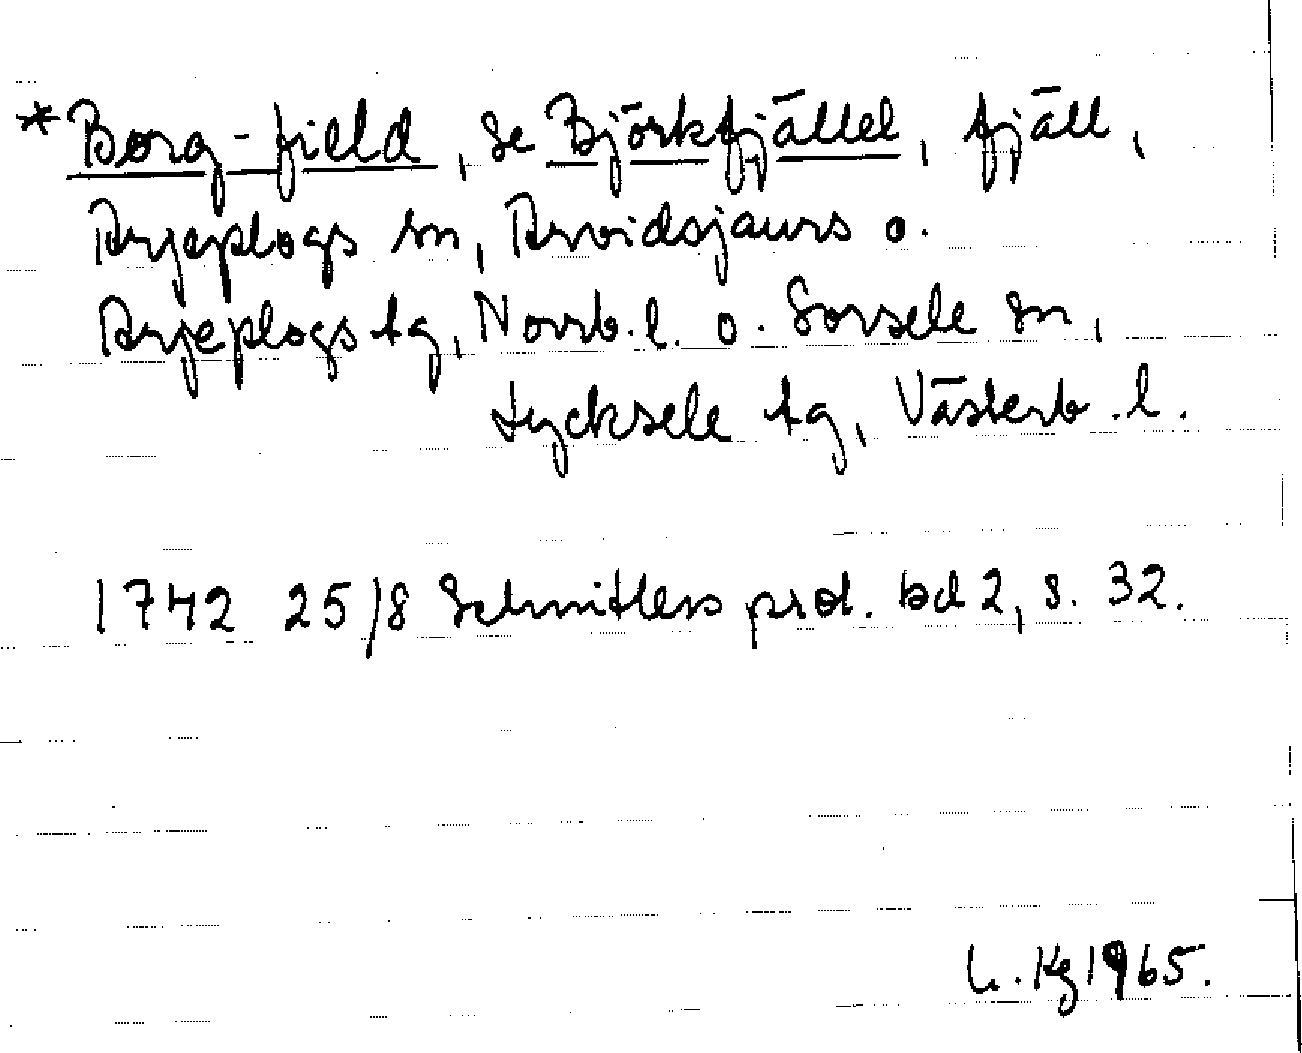 *Borg-field, se Björkfjället, fjäll,
Arjeplogs sn, Arvidsjaurs o.
Arjeplogs tg, Norrb. l. o. Sorsele sn,
Lycksele tg, Västerb. l.
1742 25/8 Schnitlers prot. bd 2, s. 32.
L. Kg 1965.